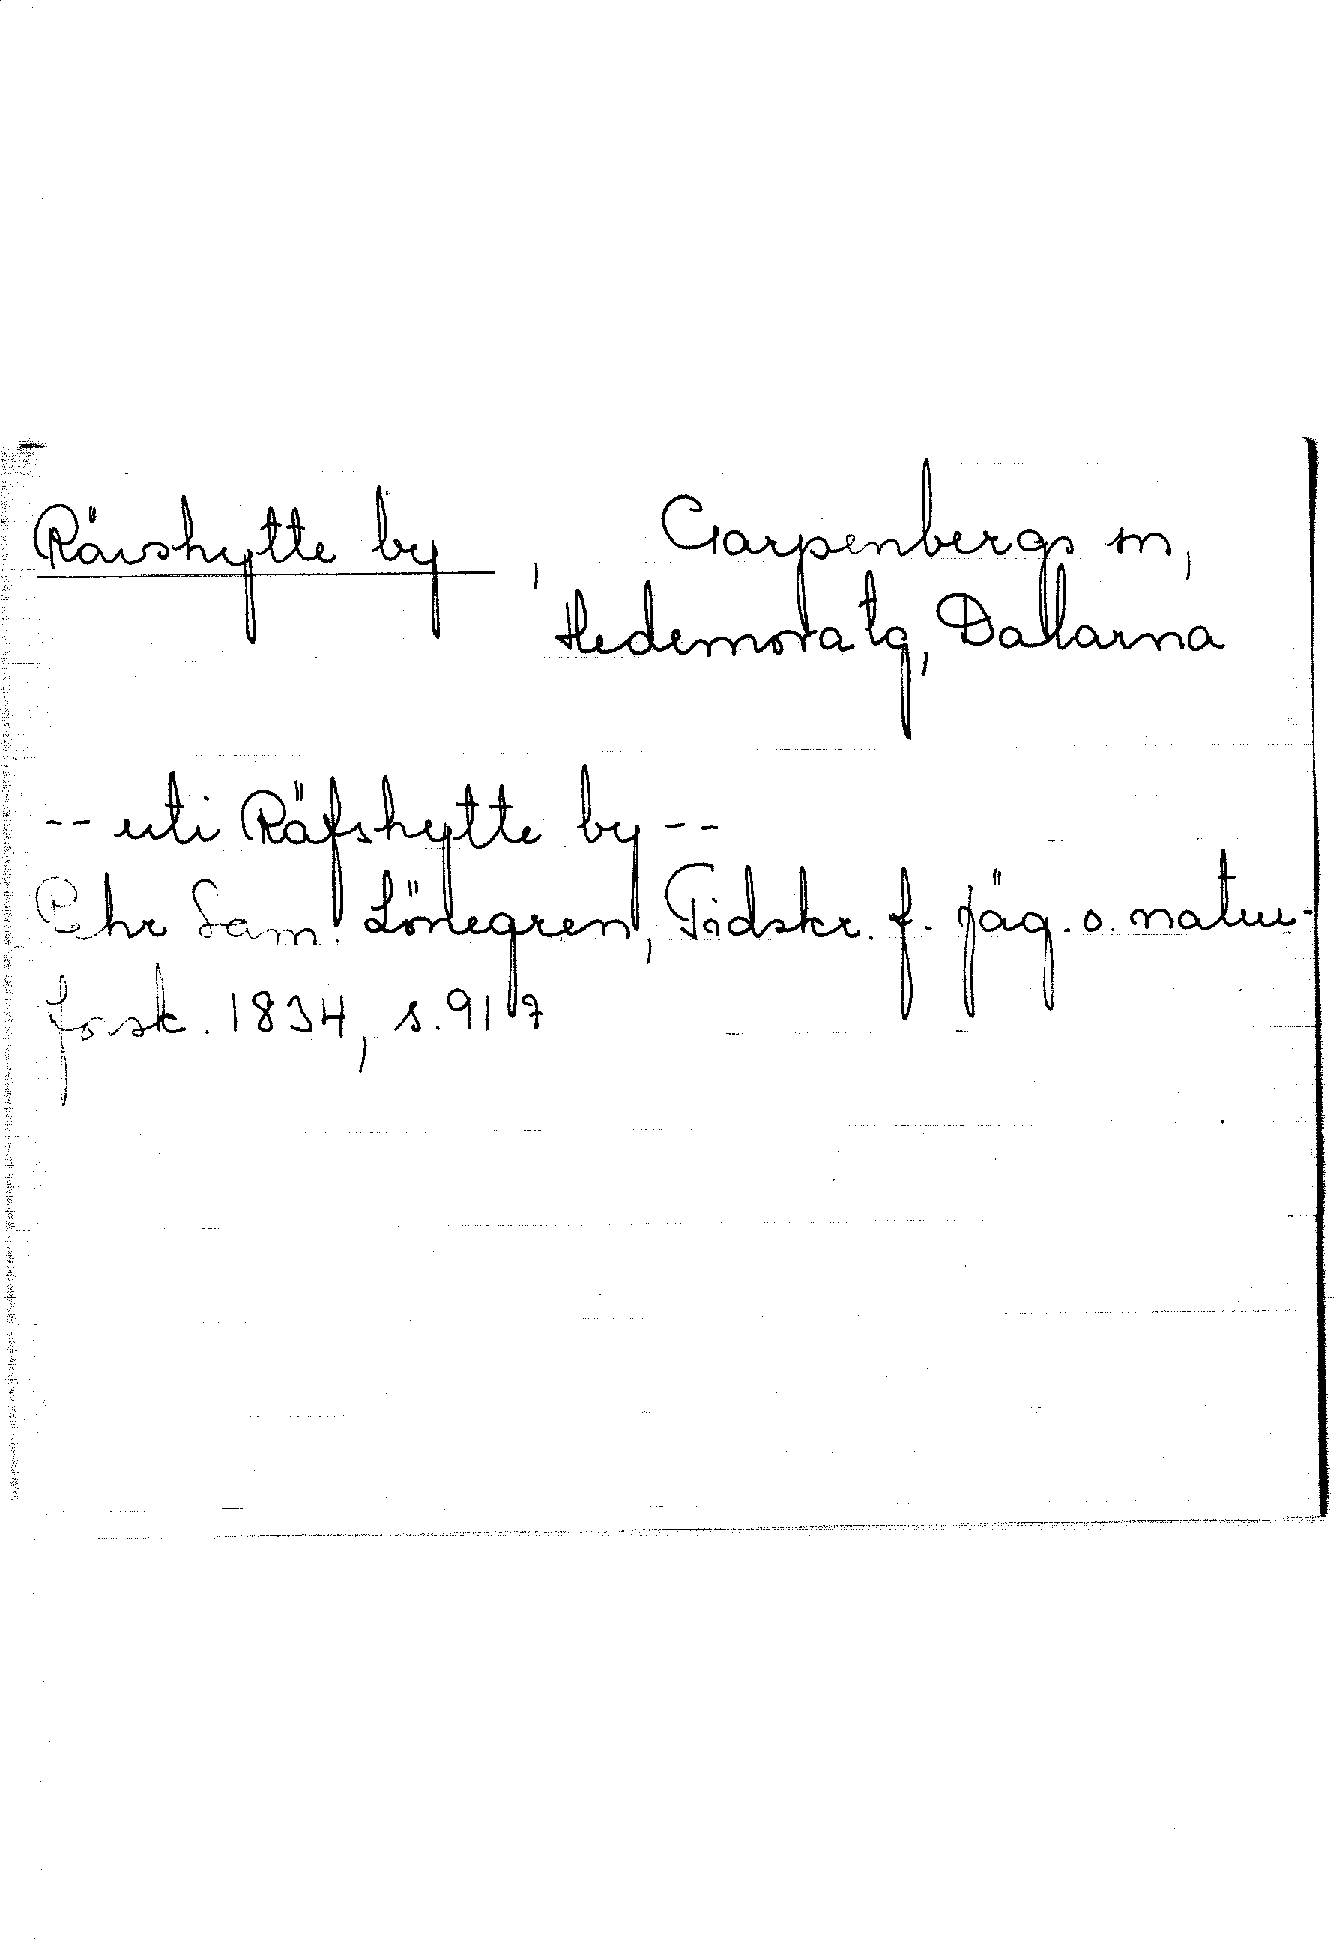 Rävshytte by, Garpenbergs sn,
Hedemora tg, Dalarna
-- uti Räfshytte by --
Pehr Sam. Lönegren, Tidskr. f. jäg. o. natur-
forsk. 1834, s. 917